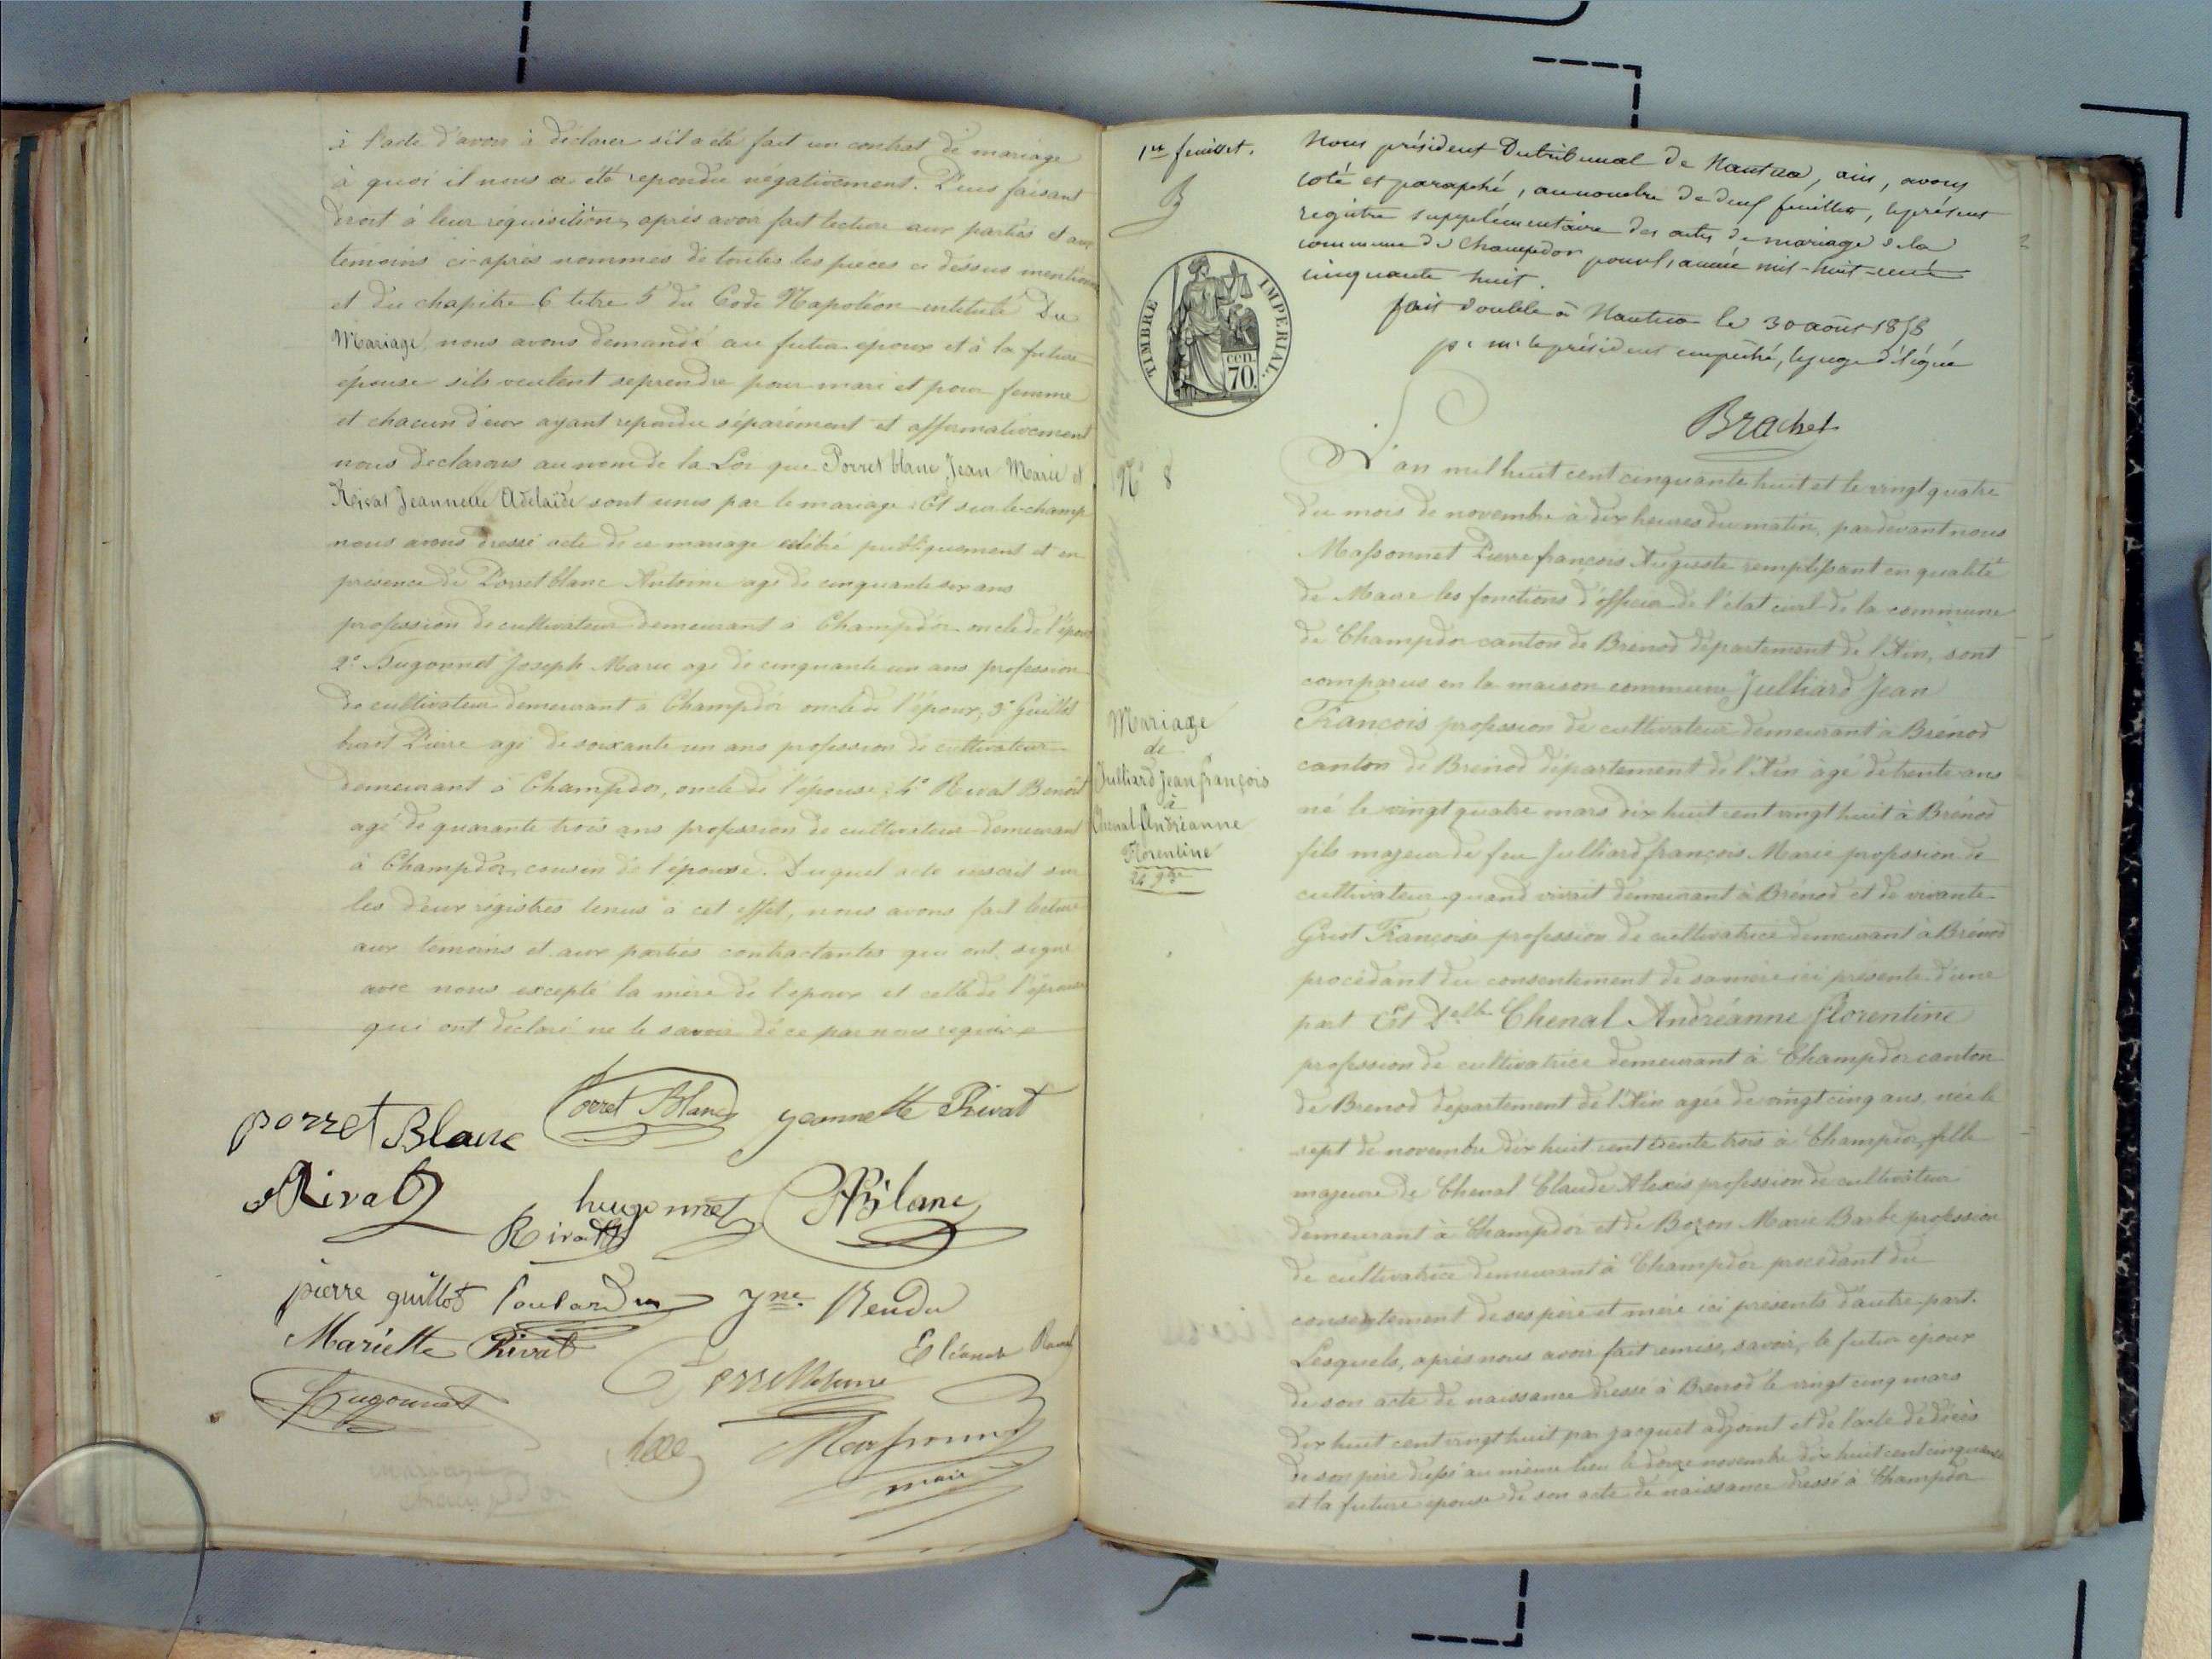 à l'acte d'avoir à déclarer s'il a été fait un contrat de mariage
à quoi il nous a été repondu négativement. Puis faisant
droit à leur réquisition, après avoir fait lecture aux parties et aux
temoins ci-après nommés de toutes les pieces ci dessus mention
et du chapitre 6 titre 5 du Code Napoléon intitulé Du
Mariage, nous avons demandé au futur époux et à la future
épouse s'ils veulent se prendre pour mari et pour femme
et chacun d'eux ayant repondu séparément et affirmativement
nous declarons au nom de la Loi que Porret blanc Jean Marie et
Rivat Jeannette Adelaïde sont unis par le mariage. Et sur le champ
nous avons dressé acte de ce mariage célébré publiquement et en
présence de Porret blanc Antoine agé de cinquante six ans
profession de cultivateur demeurant à Champdor oncle de l'époux
2° Hugonnet Joseph Marie agé de cinquante un ans profession
de cultivateur demeurant à Champdor oncle de l'époux, 3° Guillot
Pierre agé de soixante un ans profession de cultivateur
demeurant à Champdor, oncle de l'épouse, 4° Rivat Benoit
agé de quarante trois ans profession de cultivateur demeurant
à Champdor, cousin de l'épouse. Duquel acte inscrit sur
les deux régistres tenus à cet effet, nous avons fait lecture
aux temoins et aux parties contractantes qui ont signé
avec nous excepté la mère de l'epoux et celle de l'épouse
qui ont declaré ne le savoir de ce par nous requise
porret Blanc Porret Blanc jeannette Rivat
Rivat hugonnet Blanc
Rivat
pierre guillot Rendu
Mariette Rivat
Hugonnet
Massonnet
maire
1er feuillet.
Nous président Du tribunal de Nantua, ain, avons
coté et paraphé, au nombre de deux feuillets, le présent
registre supplémentaire des actes de mariage de la
commune de Champdor pour l'année mil-huit-cent
cinquante huit.
fait double à Nantua le 30 août 1858
p. mr le président empêché, le juge délégué
Brachet
TIMBRE IMPERIAL.
cen.
70.
N° 8
Mariage
de
Julliard Jean françois
à
Chenal Andréanne
Florentine
24 9bre
L'an mil huit cent cinquante huit et le vingt quatre
du mois de novembre à dix heures du matin, pardevant nous
Massonnet Pierre françois Auguste remplissant en qualité
de Maire les fonctions d'officier de l'état civil de la commune
de Champdor canton de Brénod département de l'Ain, sont
comparus en la maison commune Julliard Jean
François profession de cultivateur demeurant à Brénod
canton de Brénod département de l'Ain âgé de trente ans
né le vingt quatre mars dix huit cent vingt huit à Brénod
fils majeur de feu Julliard françois Marie profession de
cultivateur quand vivait demeurant à Brénod et de vivante
Griot Françoise profession de cultivatrice demeurant à Brénod
procédant du consentement de sa mère ici présente d'une
part Et Delle Chenal Andréanne florentine
profession de cultivatrice demeurant à Champdor canton
de Brenod département de l'Ain agée de vingt cinq ans, née le
sept de novembre dix huit cent trente trois à Champdor, fille
majeure de Chenal Claude Alexis profession de cultivateur
demeurant à Champdor et de Bozon Marie Barbe profession
de cultivatrice demeurant à Champdor procédant du
consentement de ses père et mère ici présents d'autre part.
Lesquels, après nous avoir fait remise, savoir, le futur époux
de son acte de naissance dressé à Brénod le vingt cinq mars
dix huit cent vingt huit par jacquet adjoint et de l'acte de décès
de son père dressé au même lieu le douze novembre dix huit cent cinquante
et la future épouse de son acte de naissance dressé à Champdor